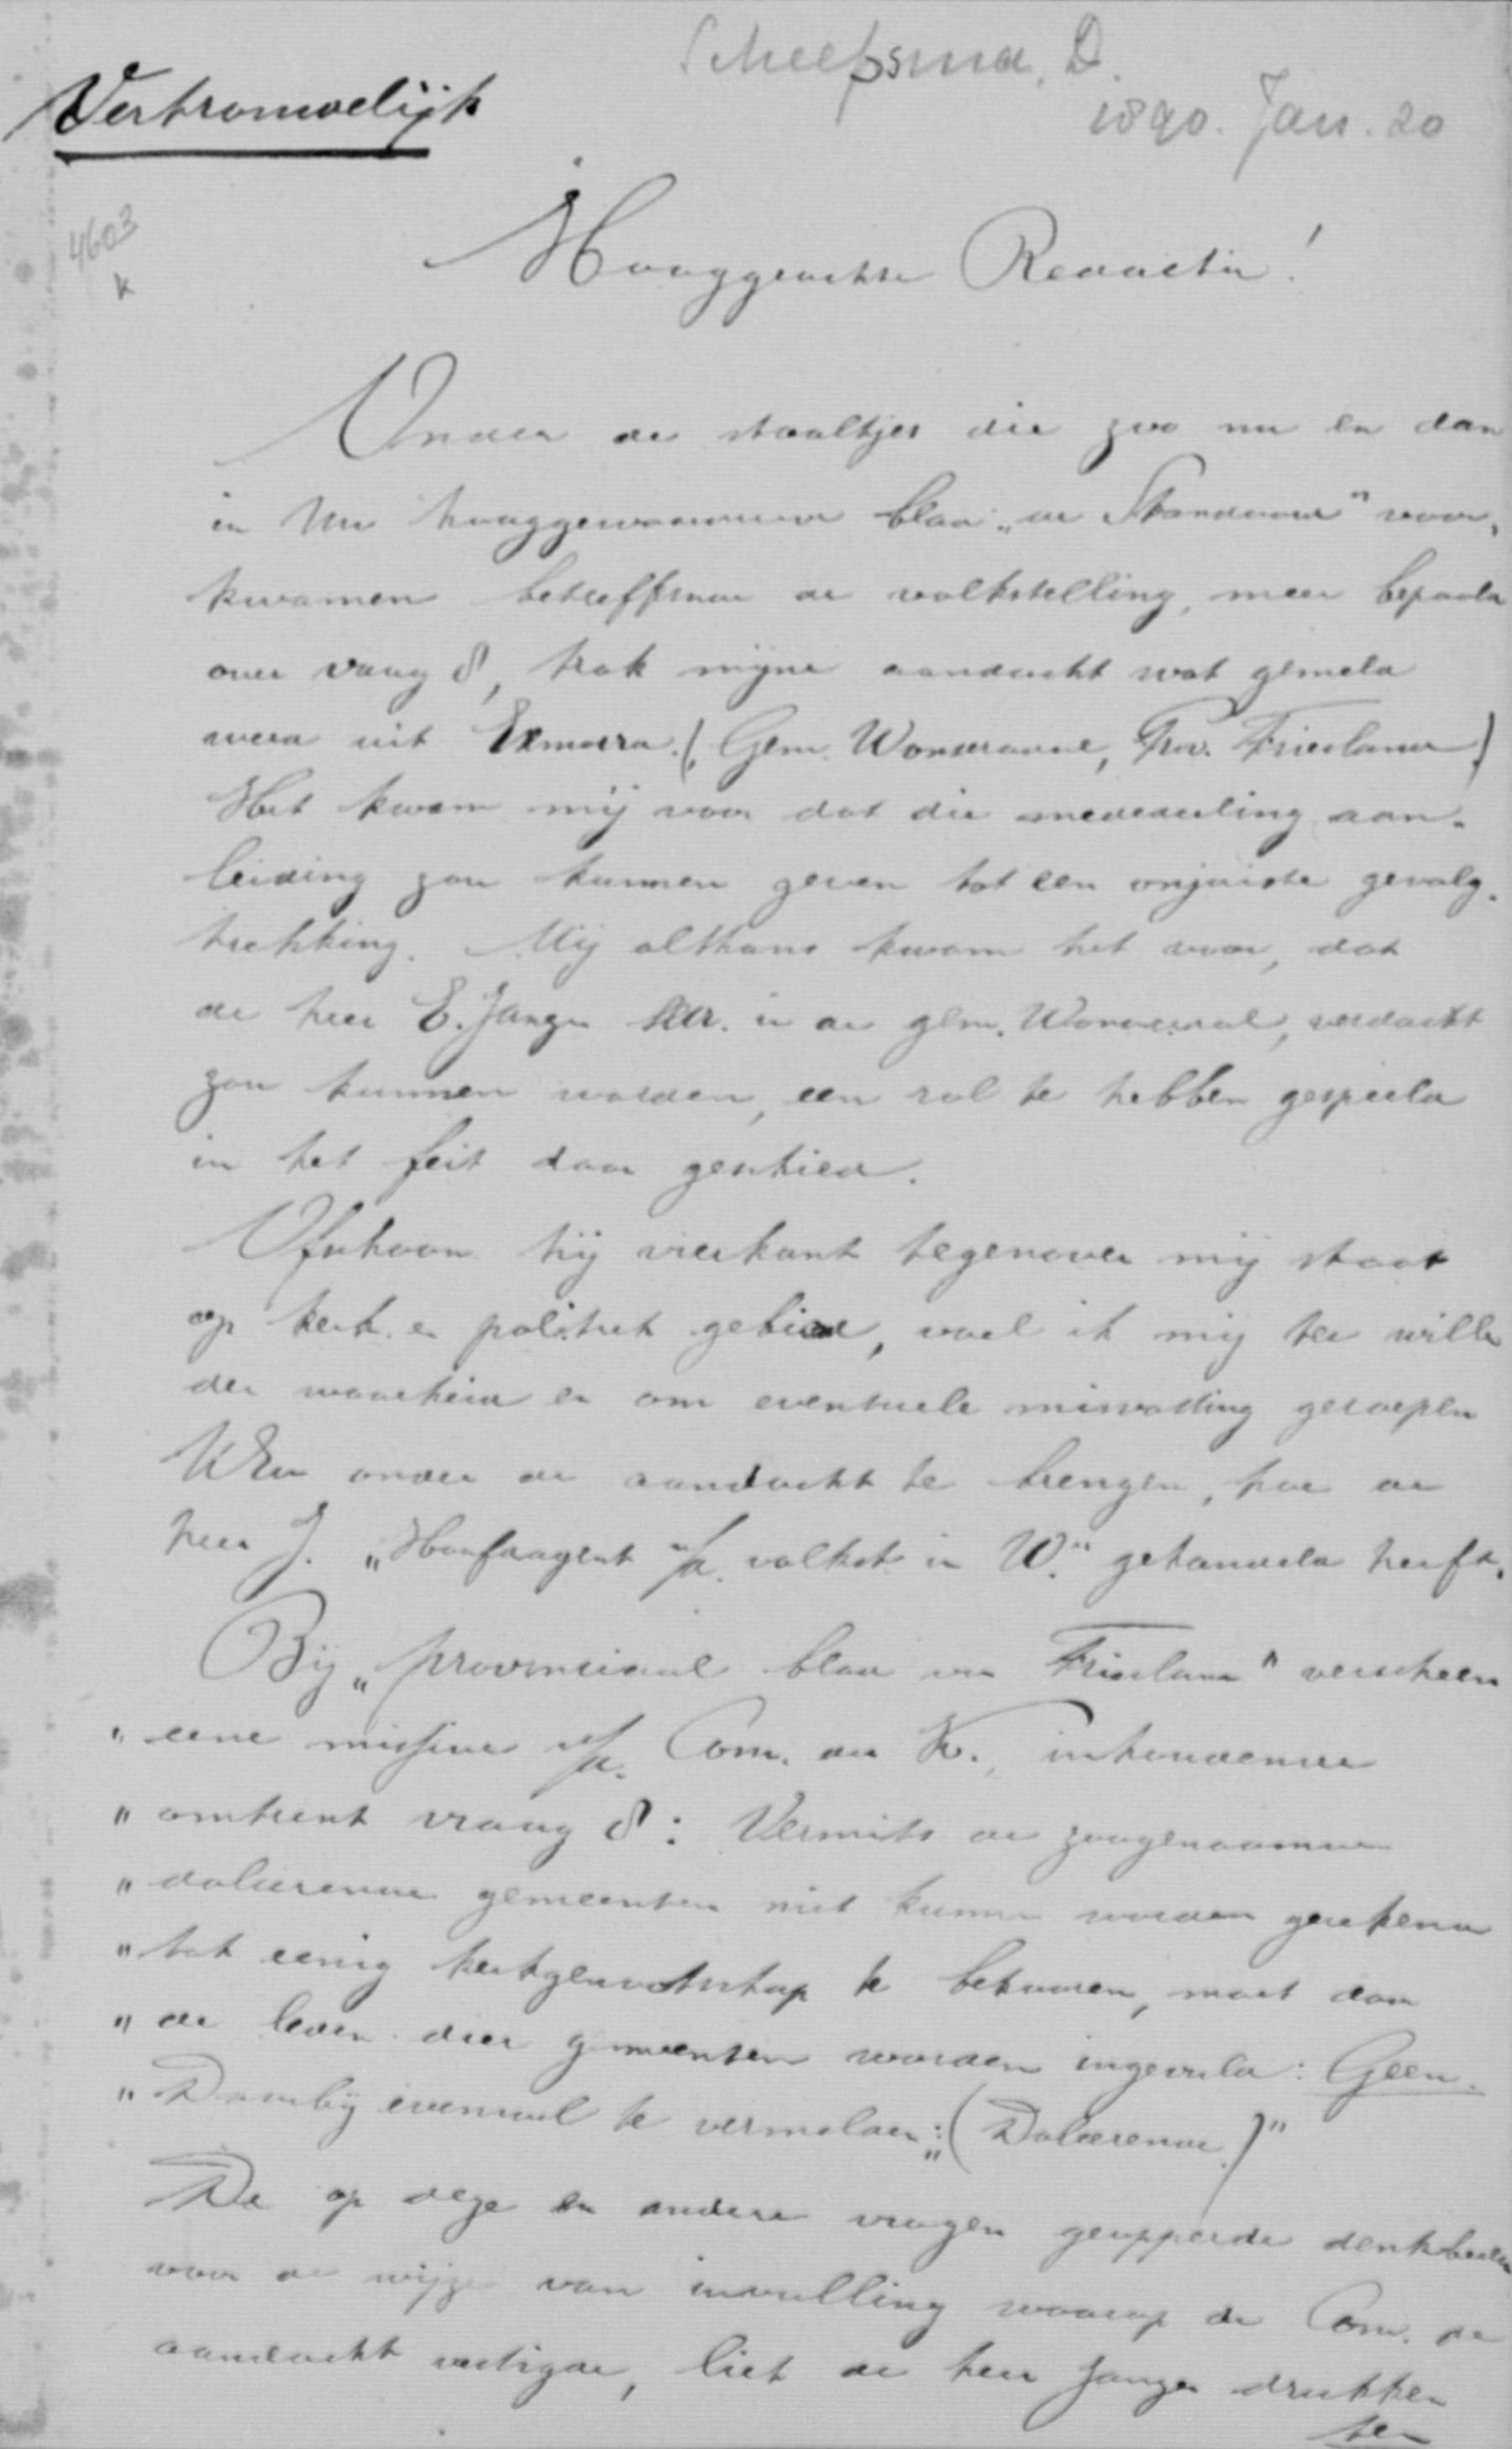 Scheepsma, D.
Vertrouwelijk
1890. Jan. 20
4603
k
Hooggeachte Redactie!
Onder de staaltjes die zoo nu en dan
in Uw hooggewaardeerd blad „de Standaard" voor-
kwamen betreffende de volkstelling, meer bepaald
over vraag 8, trok mijne aandacht wat gemeld
werd uit Exmorra. (Gem. Wonseradeel, Prov. Friesland)
Het kwam mij voor dat die mededeeling aan-
leiding zou kunnen geven tot een onjuiste gevolg-
trekking. Mij althans kwam het voor, dat
de heer E. Janze in de gem. Wonseradeel, verdacht
zou kunnen worden, een rol te hebben gespeeld
in het feit daar geschied.
Ofschoon hij vierkant tegenover mij staat
op kerk. en politiek gebied, voel ik mij ter wille
der waarheid en om eventuele misvatting geroepen
UEd. onder de aandacht te brengen, hoe de
heer J. „Hoofdagent v/d. volkst. in W." gehandeld heeft.
Bij „provinciaal blad van Friesland" verscheen
„eene missive v/d. Com. des K., inhoudende
„omtrent vraag 8: Vermits de zoogenaamde
„doleerende gemeenten niet kunnen worden gerekend
„tot eenig kerkgenootschap te behooren, moet door
„de leden dier gemeenten worden ingevuld: Geen.
„Daarbij evenwel te vermelden: „(Doleerende.)"
De op deze en andere vragen geopperde denkbeelden
voor de wijze van invulling waarop de Com. de
aandacht vestigde, liet de heer Janze drukken
ten